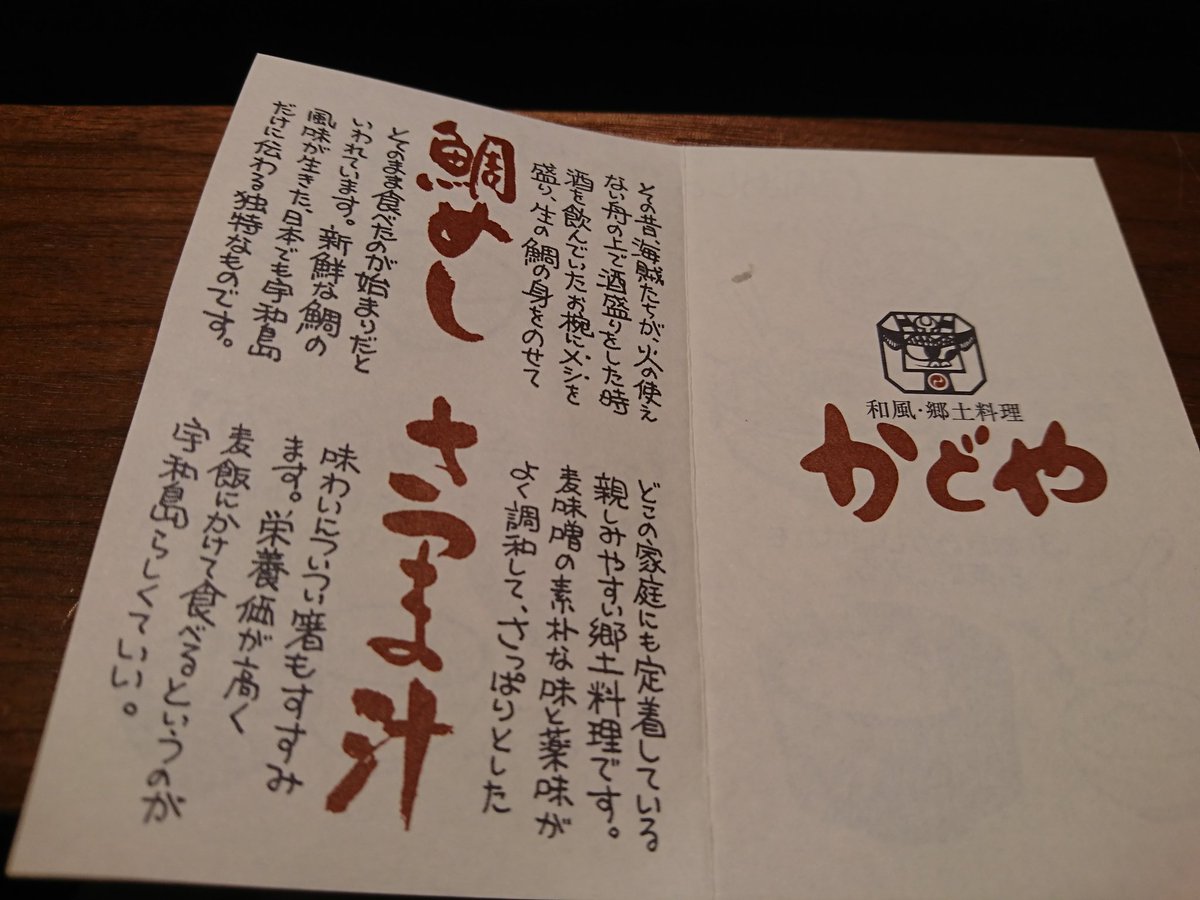 和風・郷土料理
かどや
その昔、海賊たちが、火の使え
ない舟の上で酒盛りをした時
酒を飲んでいたお椀にメシを
盛り、生の鯛の身をのせて
鯛めし
そのまま食べたのが始まりだと
いわれています。新鮮な鯛の
風味が生きた、日本でも宇和島
だけに伝わる独特なものです。
どこの家庭にも定着している
親しみやすい郷土料理です。
麦味噌の素朴な味と薬味が
よく調和して、さっぱりとした
さつま汁
味わいについつい箸もすすみ
ます。栄養価が高く
麦飯にかけて食べるというのが
宇和島らしくていい。